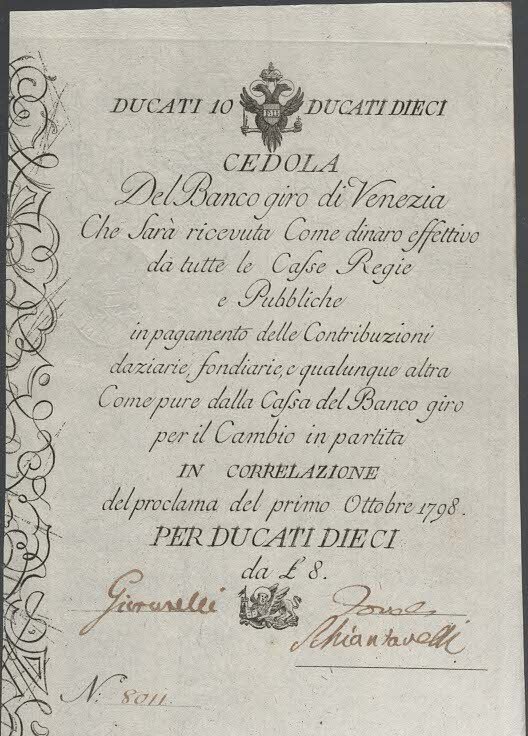 DUCATI 10 DUCATI DIECI
CEDOLA
Del Banco giro di Venezia
Che Sarà ricevuta Come dinaro effettivo
da tutte le Caſse Regie
e Pubbliche
in pagamento delle Contribuzioni
daziarie, fondiarie, e qualunque altra
Come pure dalla Caſsa del Banco giro
per il Cambio in partita
IN CORRELAZIONE
del proclama del primo Ottobre 1798.
PER DUCATI DIECI
da £ 8.
Schiantarelli
N. 8011.